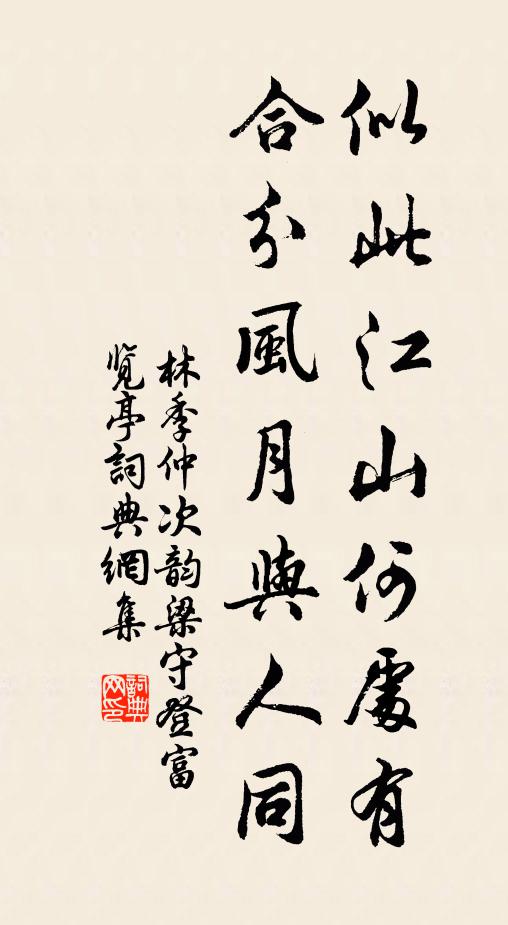 似此江山何處有
合分風月與人同
林季仲次韵梁守登富
覽亭詞典網集
詞典
网印